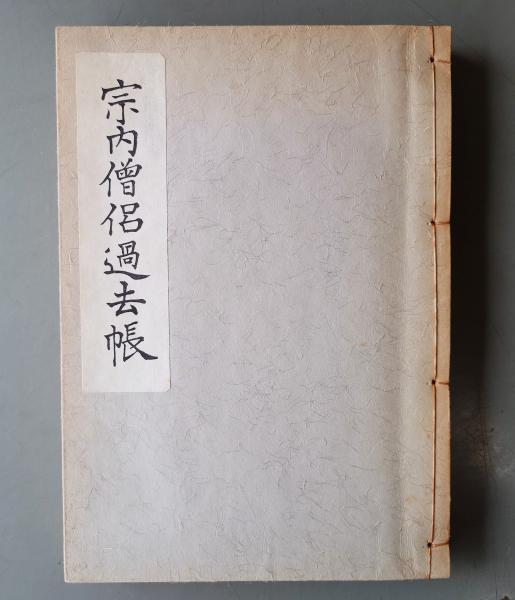 宗内僧侶過去帳